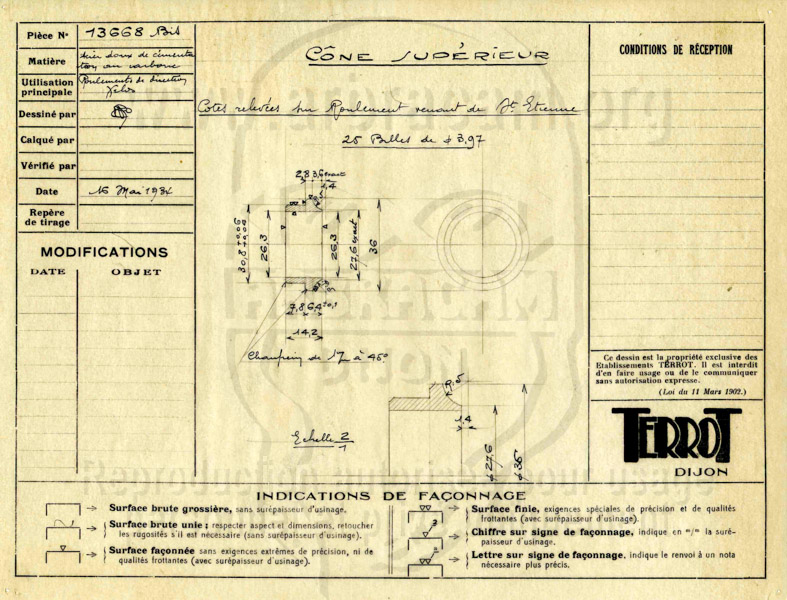 Pièce N° 13668 Bis
Matière acier doux de cémenta
tion au carbone
Utilisation principale Roulements de direction
Vélos
Dessiné par
Calqué par
Vérifié par
Date 16 Mai 1934
Repère de tirage
MODIFICATIONS
DATE OBJET
CÔNE SUPÉRIEUR
Cotes relevées sur Roulement venant de St Etienne
25 Billes de ϕ 3,97
2,8 3,6 exact
1,4
R.5
30,8
26,3
26,3
27,6 exact
36
7,8 6,4 ±0,1
14,2
Chanfrein de 1% à 45°
Echelle 2/1
R.5
1,4
ϕ 27,6
ϕ 36
CONDITIONS DE RÉCEPTION
Ce dessin est la propriété exclusive des
Etablissements TERROT. Il est interdit
d'en faire usage ou de le communiquer
sans autorisation expresse.
(Loi du 11 Mars 1902.)
TERROT
DIJON
INDICATIONS DE FAÇONNAGE
Surface brute grossière, sans surépaisseur d'usinage.
Surface brute unie ; respecter aspect et dimensions, retoucher
les rugosités s'il est nécessaire (sans surépaisseur d'usinage).
Surface façonnée sans exigences extrêmes de précision, ni de
qualités frottantes (avec surépaisseur d'usinage).
Surface finie, exigences spéciales de précision et de qualités
frottantes (avec surépaisseur d'usinage).
2
Chiffre sur signe de façonnage, indique en m/m la suré-
paisseur d'usinage.
a
Lettre sur signe de façonnage, indique le renvoi à un nota
nécessaire plus précis.